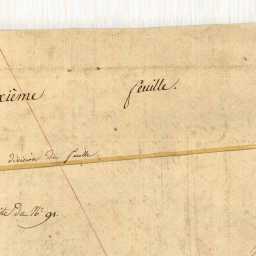 xième feuille.
division de feuille
ite du N° 91.